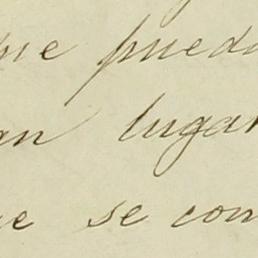 que pueda
an lugar
ue se con